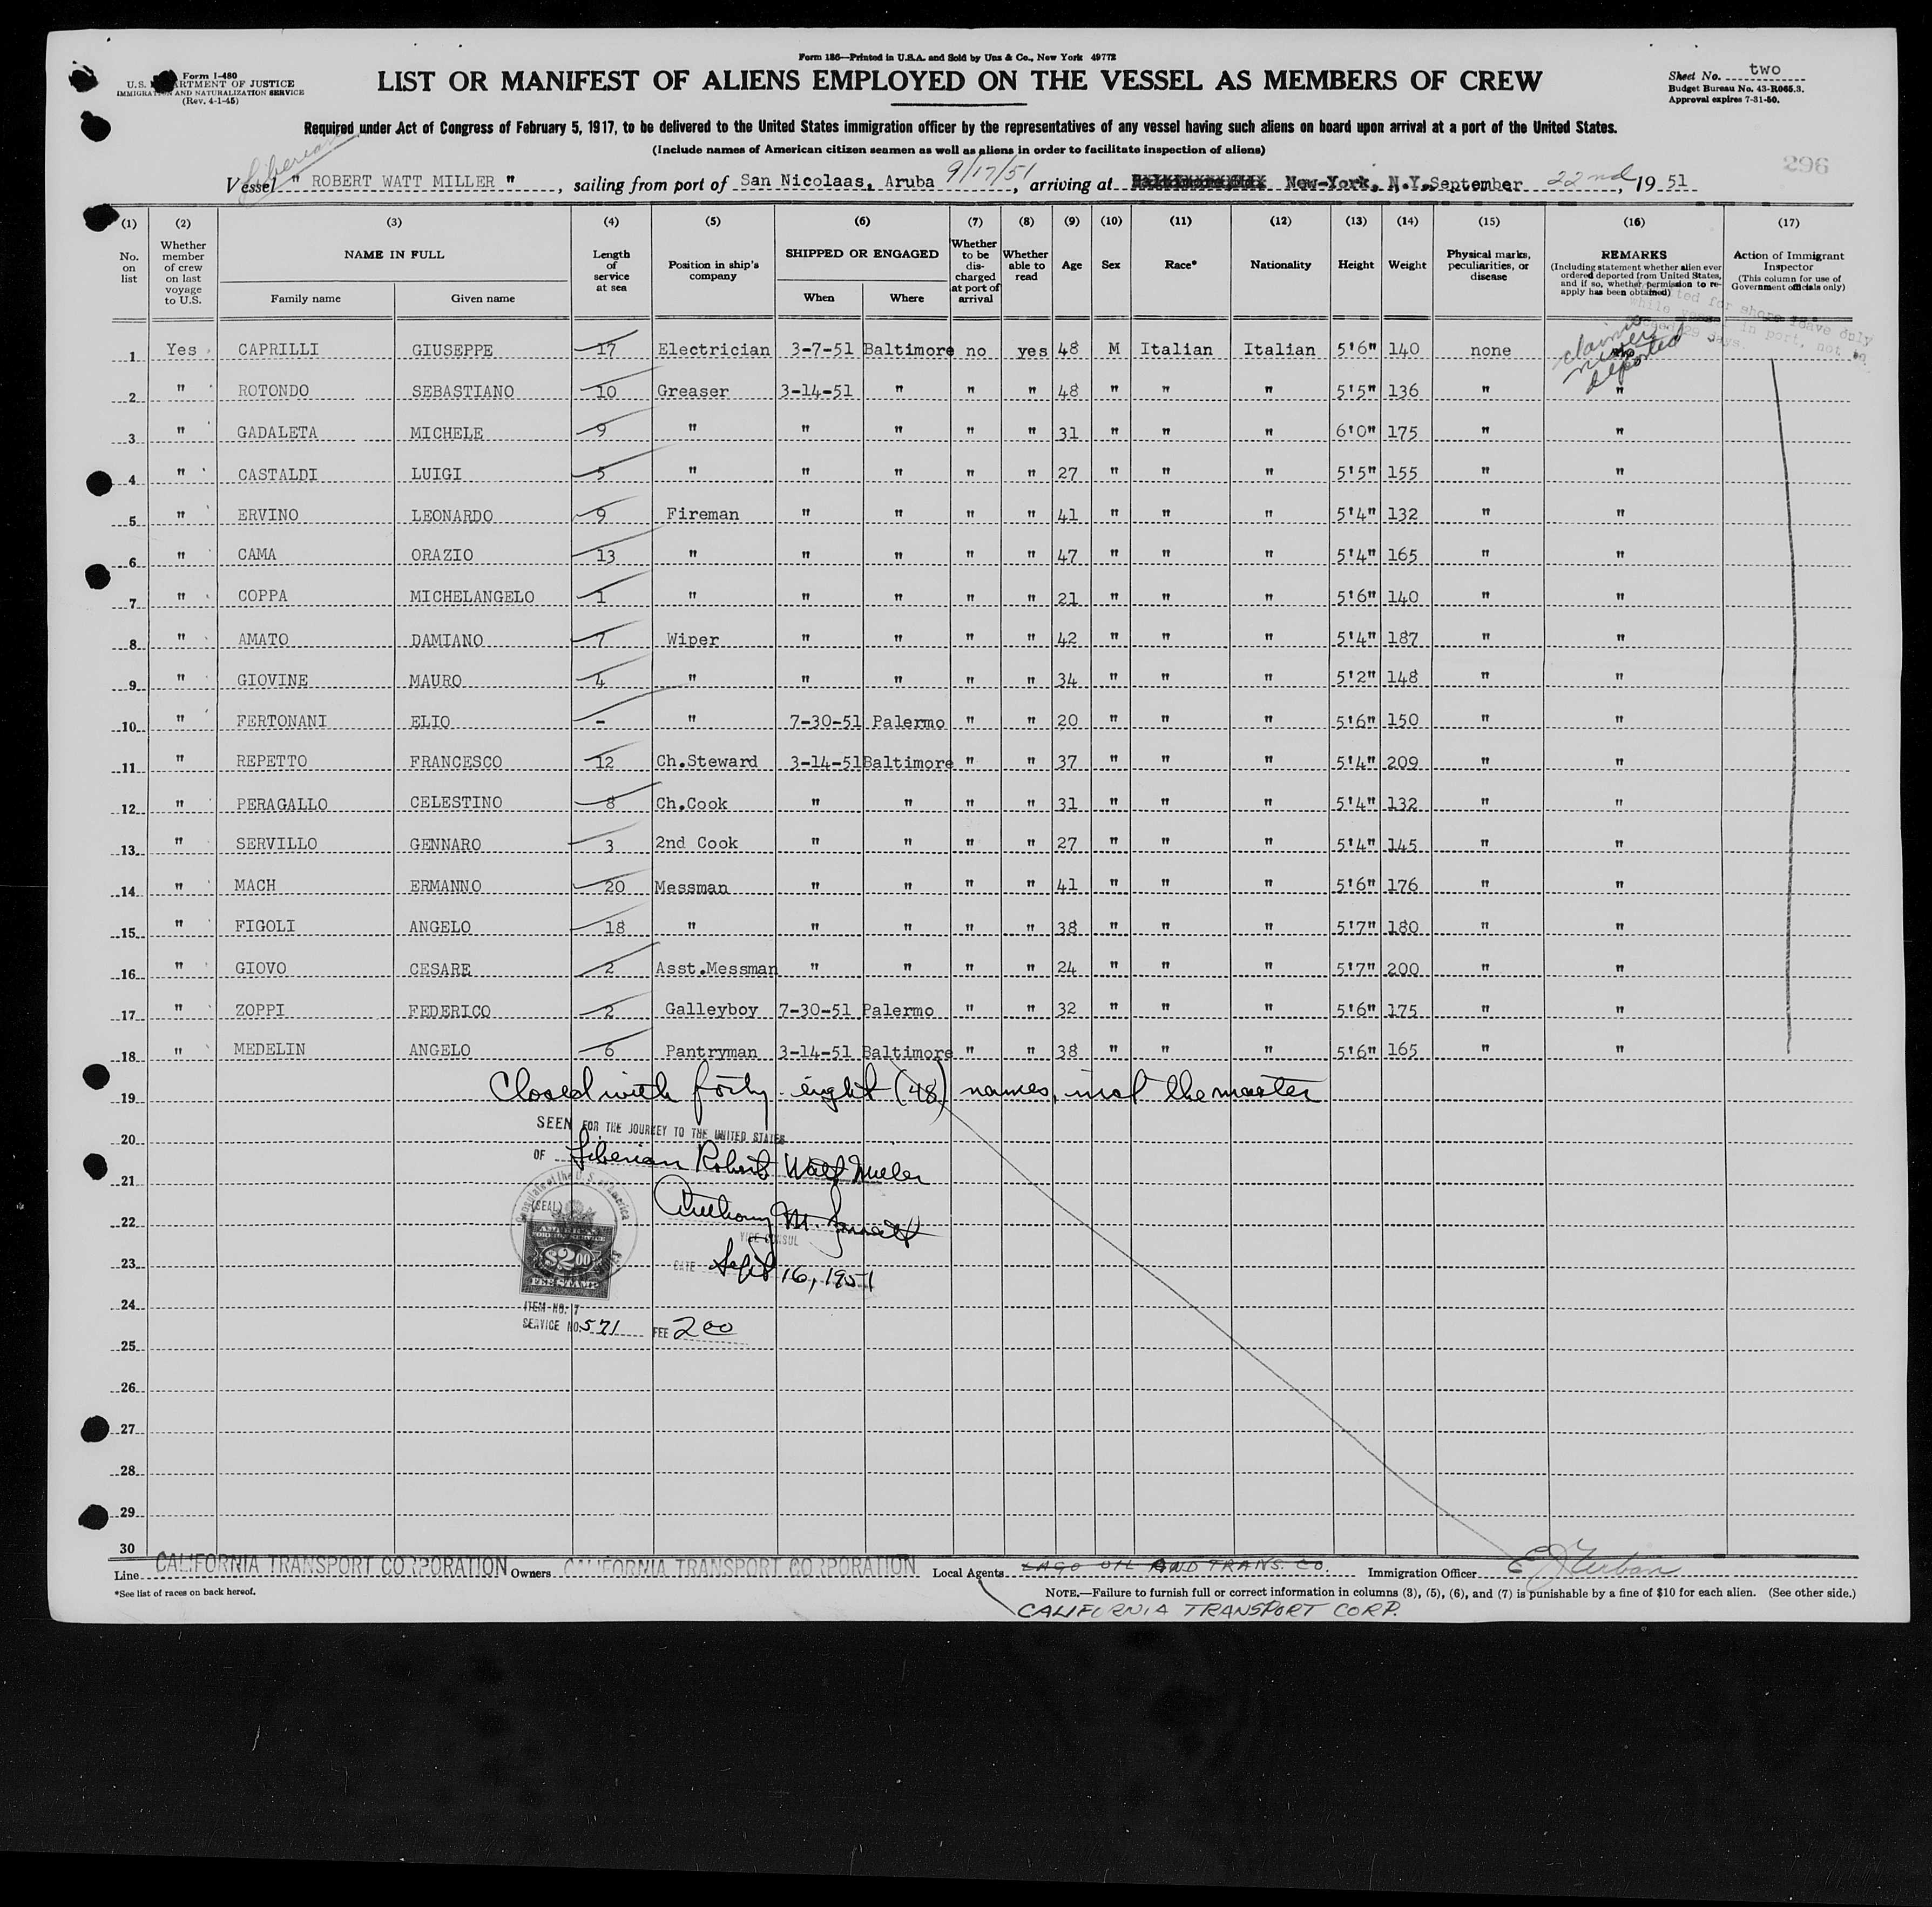 Form 186—Printed in U.S.A. and Sold by Unz & Co., New York 49772
Form I-480
U.S. DEPARTMENT OF JUSTICE
IMMIGRATION AND NATURALIZATION SERVICE
(Rev. 4-1-45)
LIST OR MANIFEST OF ALIENS EMPLOYED ON THE VESSEL AS MEMBERS OF CREW
Sheet No. two
Budget Bureau No. 43-R065.3.
Approval expires 7-31-50.
Required under Act of Congress of February 5, 1917, to be delivered to the United States immigration officer by the representatives of any vessel having such aliens on board upon arrival at a port of the United States.
(Include names of American citizen seamen as well as aliens in order to facilitate inspection of aliens)
296
Liberian
Vessel " ROBERT WATT MILLER ", sailing from port of San Nicolaas, Aruba 9/17/51, arriving at New-York, N.Y. September 22nd, 1951
(1) (2) (3) (4) (5) (6) (7) (8) (9) (10) (11) (12) (13) (14) (15) (16) (17)
No. on list
Whether member of crew on last voyage to U.S.
NAME IN FULL
Family name Given name
Length of service at sea
Position in ship's company
SHIPPED OR ENGAGED
When Where
Whether to be discharged at port of arrival
Whether able to read
Age
Sex
Race*
Nationality
Height
Weight
Physical marks, peculiarities, or disease
REMARKS
(Including statement whether alien ever ordered deported from United States, and if so, whether permission to reapply has been obtained)
Action of Immigrant Inspector
(This column for use of Government officials only)
for shore leave only
while vessel in port, not to
29 days.
claims never deported
1 Yes CAPRILLI GIUSEPPE 17 Electrician 3-7-51 Baltimore no yes 48 M Italian Italian 5'6" 140 none
2 " ROTONDO SEBASTIANO 10 Greaser 3-14-51 " " " 48 " " " 5'5" 136 " "
3 " GADALETA MICHELE 9 " " " " " 31 " " " 6'0" 175 " "
4 " CASTALDI LUIGI 5 " " " " " 27 " " " 5'5" 155 " "
5 " ERVINO LEONARDO 9 Fireman " " " " 41 " " " 5'4" 132 " "
6 " CAMA ORAZIO 13 " " " " " 47 " " " 5'4" 165 " "
7 " COPPA MICHELANGELO 1 " " " " " 21 " " " 5'6" 140 " "
8 " AMATO DAMIANO 7 Wiper " " " " 42 " " " 5'4" 187 " "
9 " GIOVINE MAURO 4 " " " " " 34 " " " 5'2" 148 " "
10 " FERTONANI ELIO - " 7-30-51 Palermo " " 20 " " " 5'6" 150 " "
11 " REPETTO FRANCESCO 12 Ch.Steward 3-14-51 Baltimore " " 37 " " " 5'4" 209 " "
12 " PERAGALLO CELESTINO 8 Ch.Cook " " " " 31 " " " 5'4" 132 " "
13 " SERVILLO GENNARO 3 2nd Cook " " " " 27 " " " 5'4" 145 " "
14 " MACH ERMANNO 20 Messman " " " " 41 " " " 5'6" 176 " "
15 " FIGOLI ANGELO 18 " " " " " 38 " " " 5'7" 180 " "
16 " GIOVO CESARE 2 Asst.Messman " " " " 24 " " " 5'7" 200 " "
17 " ZOPPI FEDERICO 2 Galleyboy 7-30-51 Palermo " " 32 " " " 5'6" 175 " "
18 " MEDELIN ANGELO 6 Pantryman 3-14-51 Baltimore " " 38 " " " 5'6" 165 " "
19 Closed with forty-eight (48) names, incl the master
SEEN FOR THE JOURNEY TO THE UNITED STATES
20
OF Liberian Robert Watt Miller
21
Consulate of the U.S. of America
(SEAL)
Anthony M.
22
VICE CONSUL
AMERICAN FOREIGN SERVICE
$2.00
FEE STAMP
23
DATE Sept 16, 1951
24
ITEM NO. 7
SERVICE NO. 571 FEE 200
25
26
27
28
29
30
Line CALIFORNIA TRANSPORT CORPORATION Owners CALIFORNIA TRANSPORT CORPORATION Local Agents LAGO OIL AND TRANS. CO. Immigration Officer
*See list of races on back hereof.
NOTE.—Failure to furnish full or correct information in columns (3), (5), (6), and (7) is punishable by a fine of $10 for each alien. (See other side.)
CALIFORNIA TRANSPORT CORP.